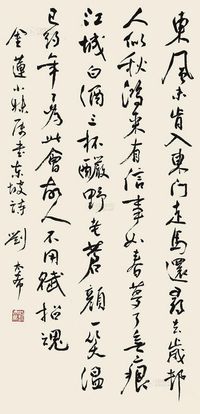 東風未肯入東門走馬還尋去歲邨
人似秋鴻來有信事如春夢了無痕
江城白酒三杯釅野老蒼顏一笑溫
已約年々為此會故人不用賦招魂
金蓮小妹屬書東坡詩 劉